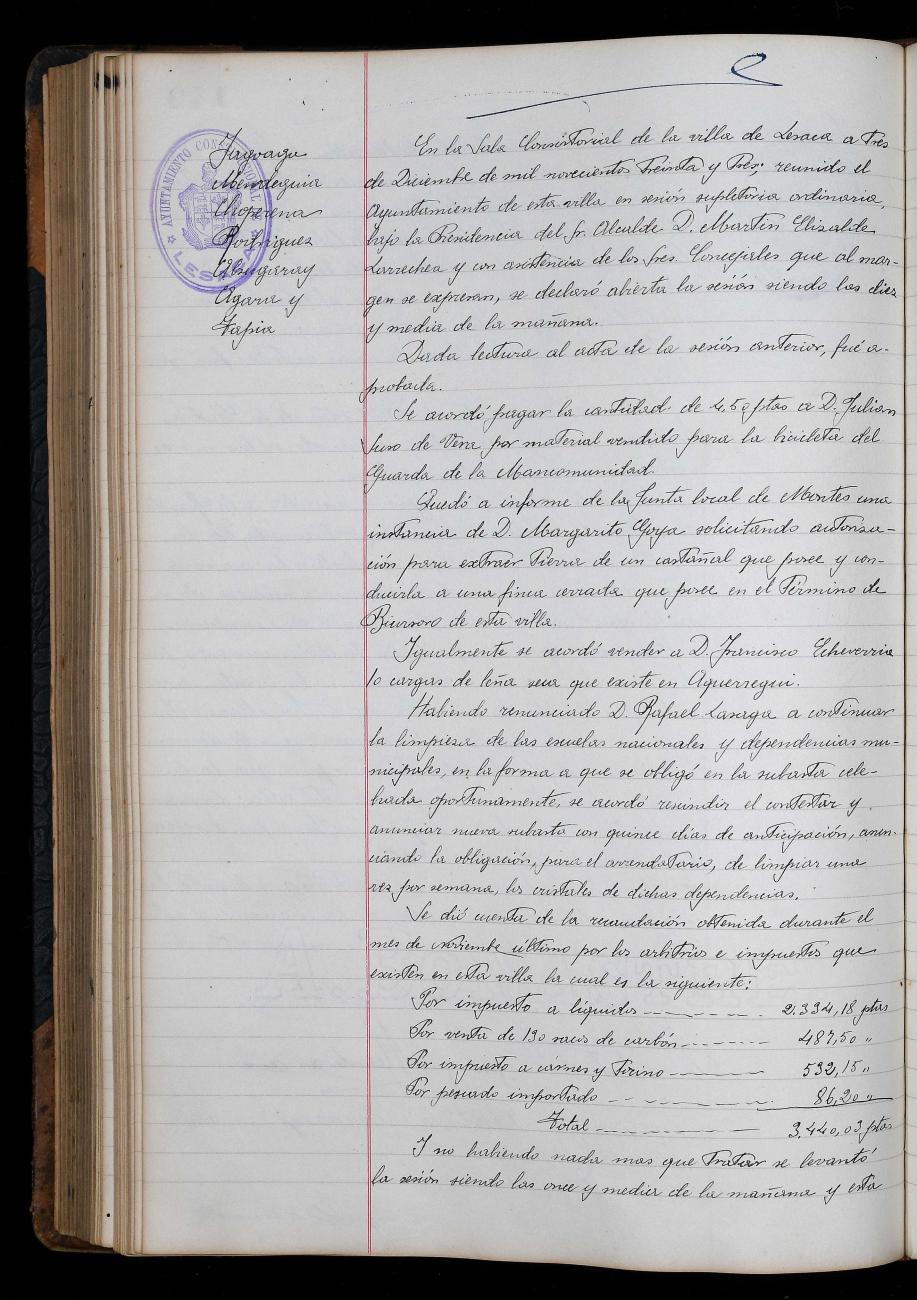 AYUNTAMIENTO CONSTITUCIONAL
LESACA
Jaguaga
Mendeguia
Choperena
Rodriguez
Elsugaray
Agara y
Tapia
En la Sala Consistorial de la villa de Lesaca a tres
de Diciembre de mil novecientos treinta y tres; reunido el
Ayuntamiento de esta villa en sesión supletoria ordinaria,
bajo la Presidencia del Sr. Alcalde D. Martin Elizalde
Larrechea y con asistencia de los Sres. Concejales que al mar-
gen se expresan, se declaró abierta la sesión siendo las diez
y media de la mañana.
Dada lectura al acta de la sesión anterior, fué a-
probada.
Se acordó pagar la cantidad de 4,50 ptas a D. Julian
Juso de Vera por material vendido para la bicicleta del
Guarda de la Mancomunidad.
Quedó a informe de la Junta local de Montes una
instancia de D. Margarito Goya solicitando autoriza-
ción para extraer tierra de un castañal que posee y con-
ducirla a una finca cerrada que posee en el término de
Biursoro de esta villa.
Igualmente se acordó vender a D. Francisco Echeverria
10 cargas de leña seca que existe en Aguerregui.
Habiendo renunciado D. Rafael Lasaga a continuar
la limpieza de las escuelas nacionales y dependencias mu-
nicipales, en la forma a que se obligó en la subasta cele-
brada oportunamente, se acordó rescindir el contestar y
anunciar nueva subasta con quince dias de anticipación, anun-
ciando la obligación, para el arrendatario, de limpiar una
vez por semana, los cristales de dichas dependencias.
Se dió cuenta de la recaudación obtenida durante el
mes de noviembre último por los arbitrios e impuestos que
existen en esta villa la cual es la siguiente:
Por impuesto a líquidos 2.334,18 ptas
Por venta de 130 sacos de carbón 487,50 "
Por impuesto a carnes y tocino 532,15 "
Por pescado importado 86,20 "
Total 3.440,03 ptas
Y no habiendo nada mas que tratar se levantó
la sesión siendo las once y media de la mañana y esta